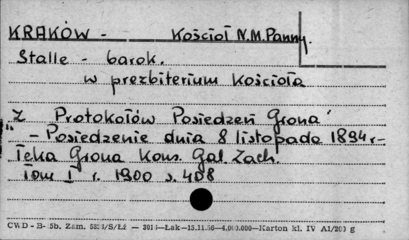 KRAKÓW - Kościoł N.M.Panny.
Stalle - barok.
w prezbiterium Kościoła
"Z Protokołów Posiedzeń Grona"
- Posiedzenie dnia 8 listopada 1894 r -
Teka Grona Kons. Gal. Zach.
Tom I r. 1900 s. 408
CWD - B- 5b. Zam. /S/Łż — Łak—15.11.56—4.000.000—Karton kl. IV A1/200 g